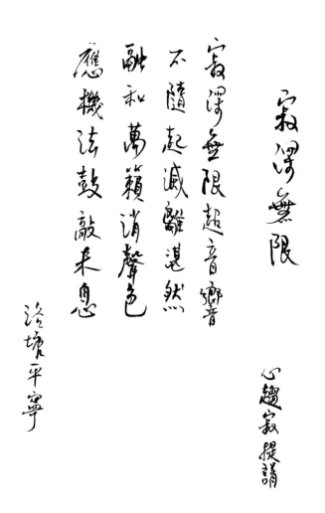 寂澤無限
心趨寂提誦
寂澤無限超音響
不隨起滅離湛然
融和萬籟消聲色
應機法鼓敲未息
塘平寧